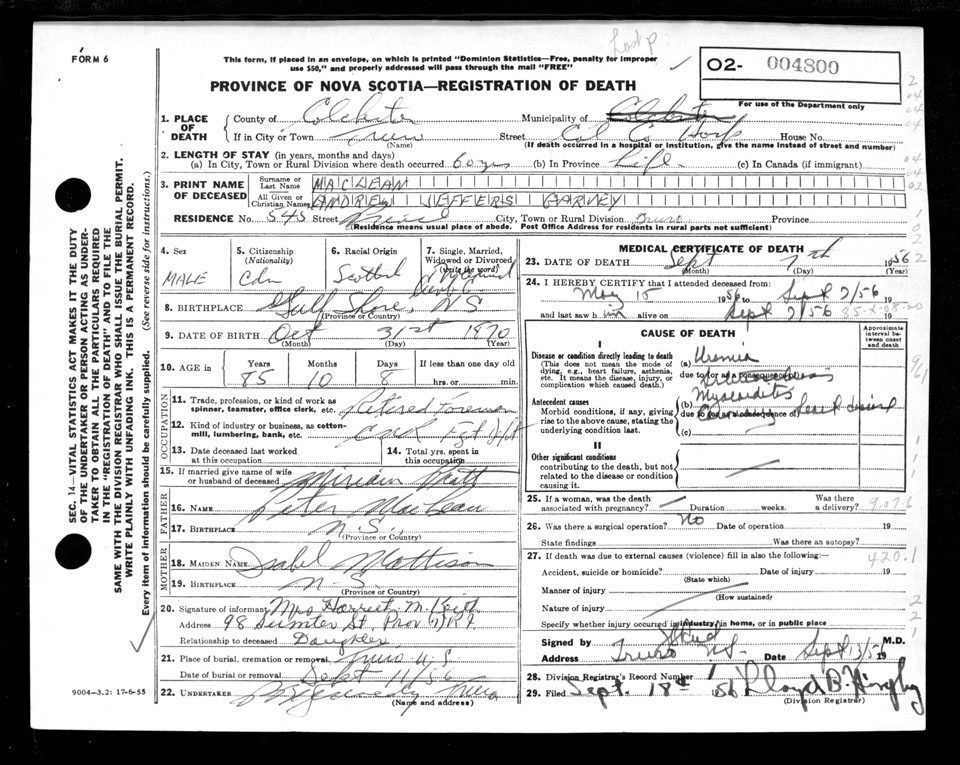 FORM 6
This form, if placed in an envelope, on which is printed "Dominion Statistics—Free, penalty for improper
use $50," and properly addressed will pass through the mail "FREE"
O2- 004800
For use of the Department only
PROVINCE OF NOVA SCOTIA—REGISTRATION OF DEATH
1. PLACE OF DEATH
County of Colchester Municipality of Colchester
If in City or Town Truro Street Col C Hosp House No.
(Name) (If death occurred in a hospital or institution, give the name instead of street and number)
2. LENGTH OF STAY (in years, months and days)
(a) In City, Town or Rural Division where death occurred 60 yrs (b) In Province Life (c) In Canada (if immigrant)
3. PRINT NAME OF DECEASED
Surname or Last Name MACLEAN
All Given or Christian Names ANDREW JEFFERS GARVEY
RESIDENCE No. 545 Street City, Town or Rural Division Truro Province
(Residence means usual place of abode. Post Office Address for residents in rural parts not sufficient)
4. Sex MALE
5. Citizenship (Nationality) Cdn
6. Racial Origin Scottish
7. Single, Married, Widowed or Divorced (write the word)
8. BIRTHPLACE Gulf Shore, N S
(Province or Country)
9. DATE OF BIRTH Oct 31st 1870
(Month) (Day) (Year)
10. AGE in Years 85 Months 10 Days 8 If less than one day old hrs. or min.
OCCUPATION
11. Trade, profession, or kind of work as spinner, teamster, office clerk, etc. Retired Foreman
12. Kind of industry or business, as cotton-mill, lumbering, bank, etc. CNR Fgt
13. Date deceased last worked at this occupation
14. Total yrs. spent in this occupation
15. If married give name of wife or husband of deceased Miriam
FATHER
16. Name Peter MacLean
17. Birthplace N.S.
(Province or Country)
MOTHER
18. Maiden Name Isabel Mattison
19. Birthplace N-S.
(Province or Country)
20. Signature of informant Mrs Harriet M. Keith
Address 98 Sumter St. Prov. (7) R I.
Relationship to deceased Daughter
21. Place of burial, cremation or removal Truro N-S
Date of burial or removal Sept 11/56
22. Undertaker Truro
(Name and address)
MEDICAL CERTIFICATE OF DEATH
23. DATE OF DEATH Sept 7th 1956
(Month) (Day) (Year)
24. I HEREBY CERTIFY that I attended deceased from:
May 15 1956 to Sept 7/56
and last saw him alive on Sept 7/56 19
CAUSE OF DEATH
Approximate interval between onset and death
I
Disease or condition directly leading to death
(This does not mean the mode of dying, e.g., heart failure, asthenia, etc. It means the disease, injury, or complication which caused death.)
(a) Uremia
due to (or as a consequence of)
Antecedent causes
Morbid conditions, if any, giving rise to the above cause, stating the underlying condition last.
(b) Myocarditis
due to (or as a consequence of) Coronary heart disease
(c)
II
Other significant conditions
contributing to the death, but not related to the disease or condition causing it.
25. If a woman, was the death associated with pregnancy? Duration weeks Was there a delivery?
26. Was there a surgical operation? No Date of operation 19
State findings Was there an autopsy?
27. If death was due to external causes (violence) fill in also the following:—
420.1
Accident, suicide or homicide? Date of injury 19
(State which)
Manner of injury
(How sustained)
Nature of injury
Specify whether injury occurred in industry, in home, or in public place
Signed by M.D.
Address Truro NS. Date Sept 13/56 19
28. Division Registrar's Record Number
29. Filed Sept. 18th 1956 Lloyd B.
(Division Registrar)
SEC. 14—VITAL STATISTICS ACT MAKES IT THE DUTY
OF THE UNDERTAKER OR PERSON ACTING AS UNDER-
TAKER TO OBTAIN ALL THE PARTICULARS REQUIRED
IN THE "REGISTRATION OF DEATH" AND TO FILE THE
SAME WITH THE DIVISION REGISTRAR WHO SHALL ISSUE THE BURIAL PERMIT.
WRITE PLAINLY WITH UNFADING INK. THIS IS A PERMANENT RECORD.
Every item of information should be carefully supplied. (See reverse side for instructions.)
9004-3.2: 17-6-55